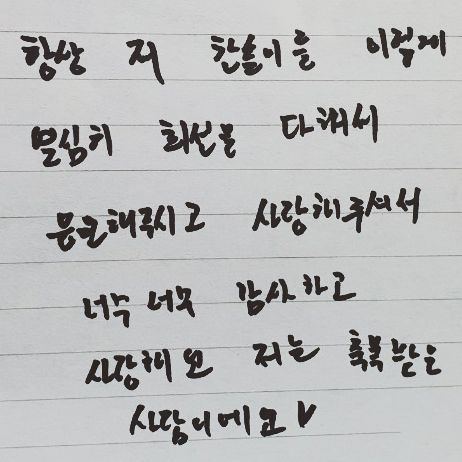 항상 저 찬솔이를 이렇게
열심히 최선을 다해서
응원해주시고 사랑해주셔서
너무 너무 감사하고
사랑해요 저는 축복받은
사람이에요